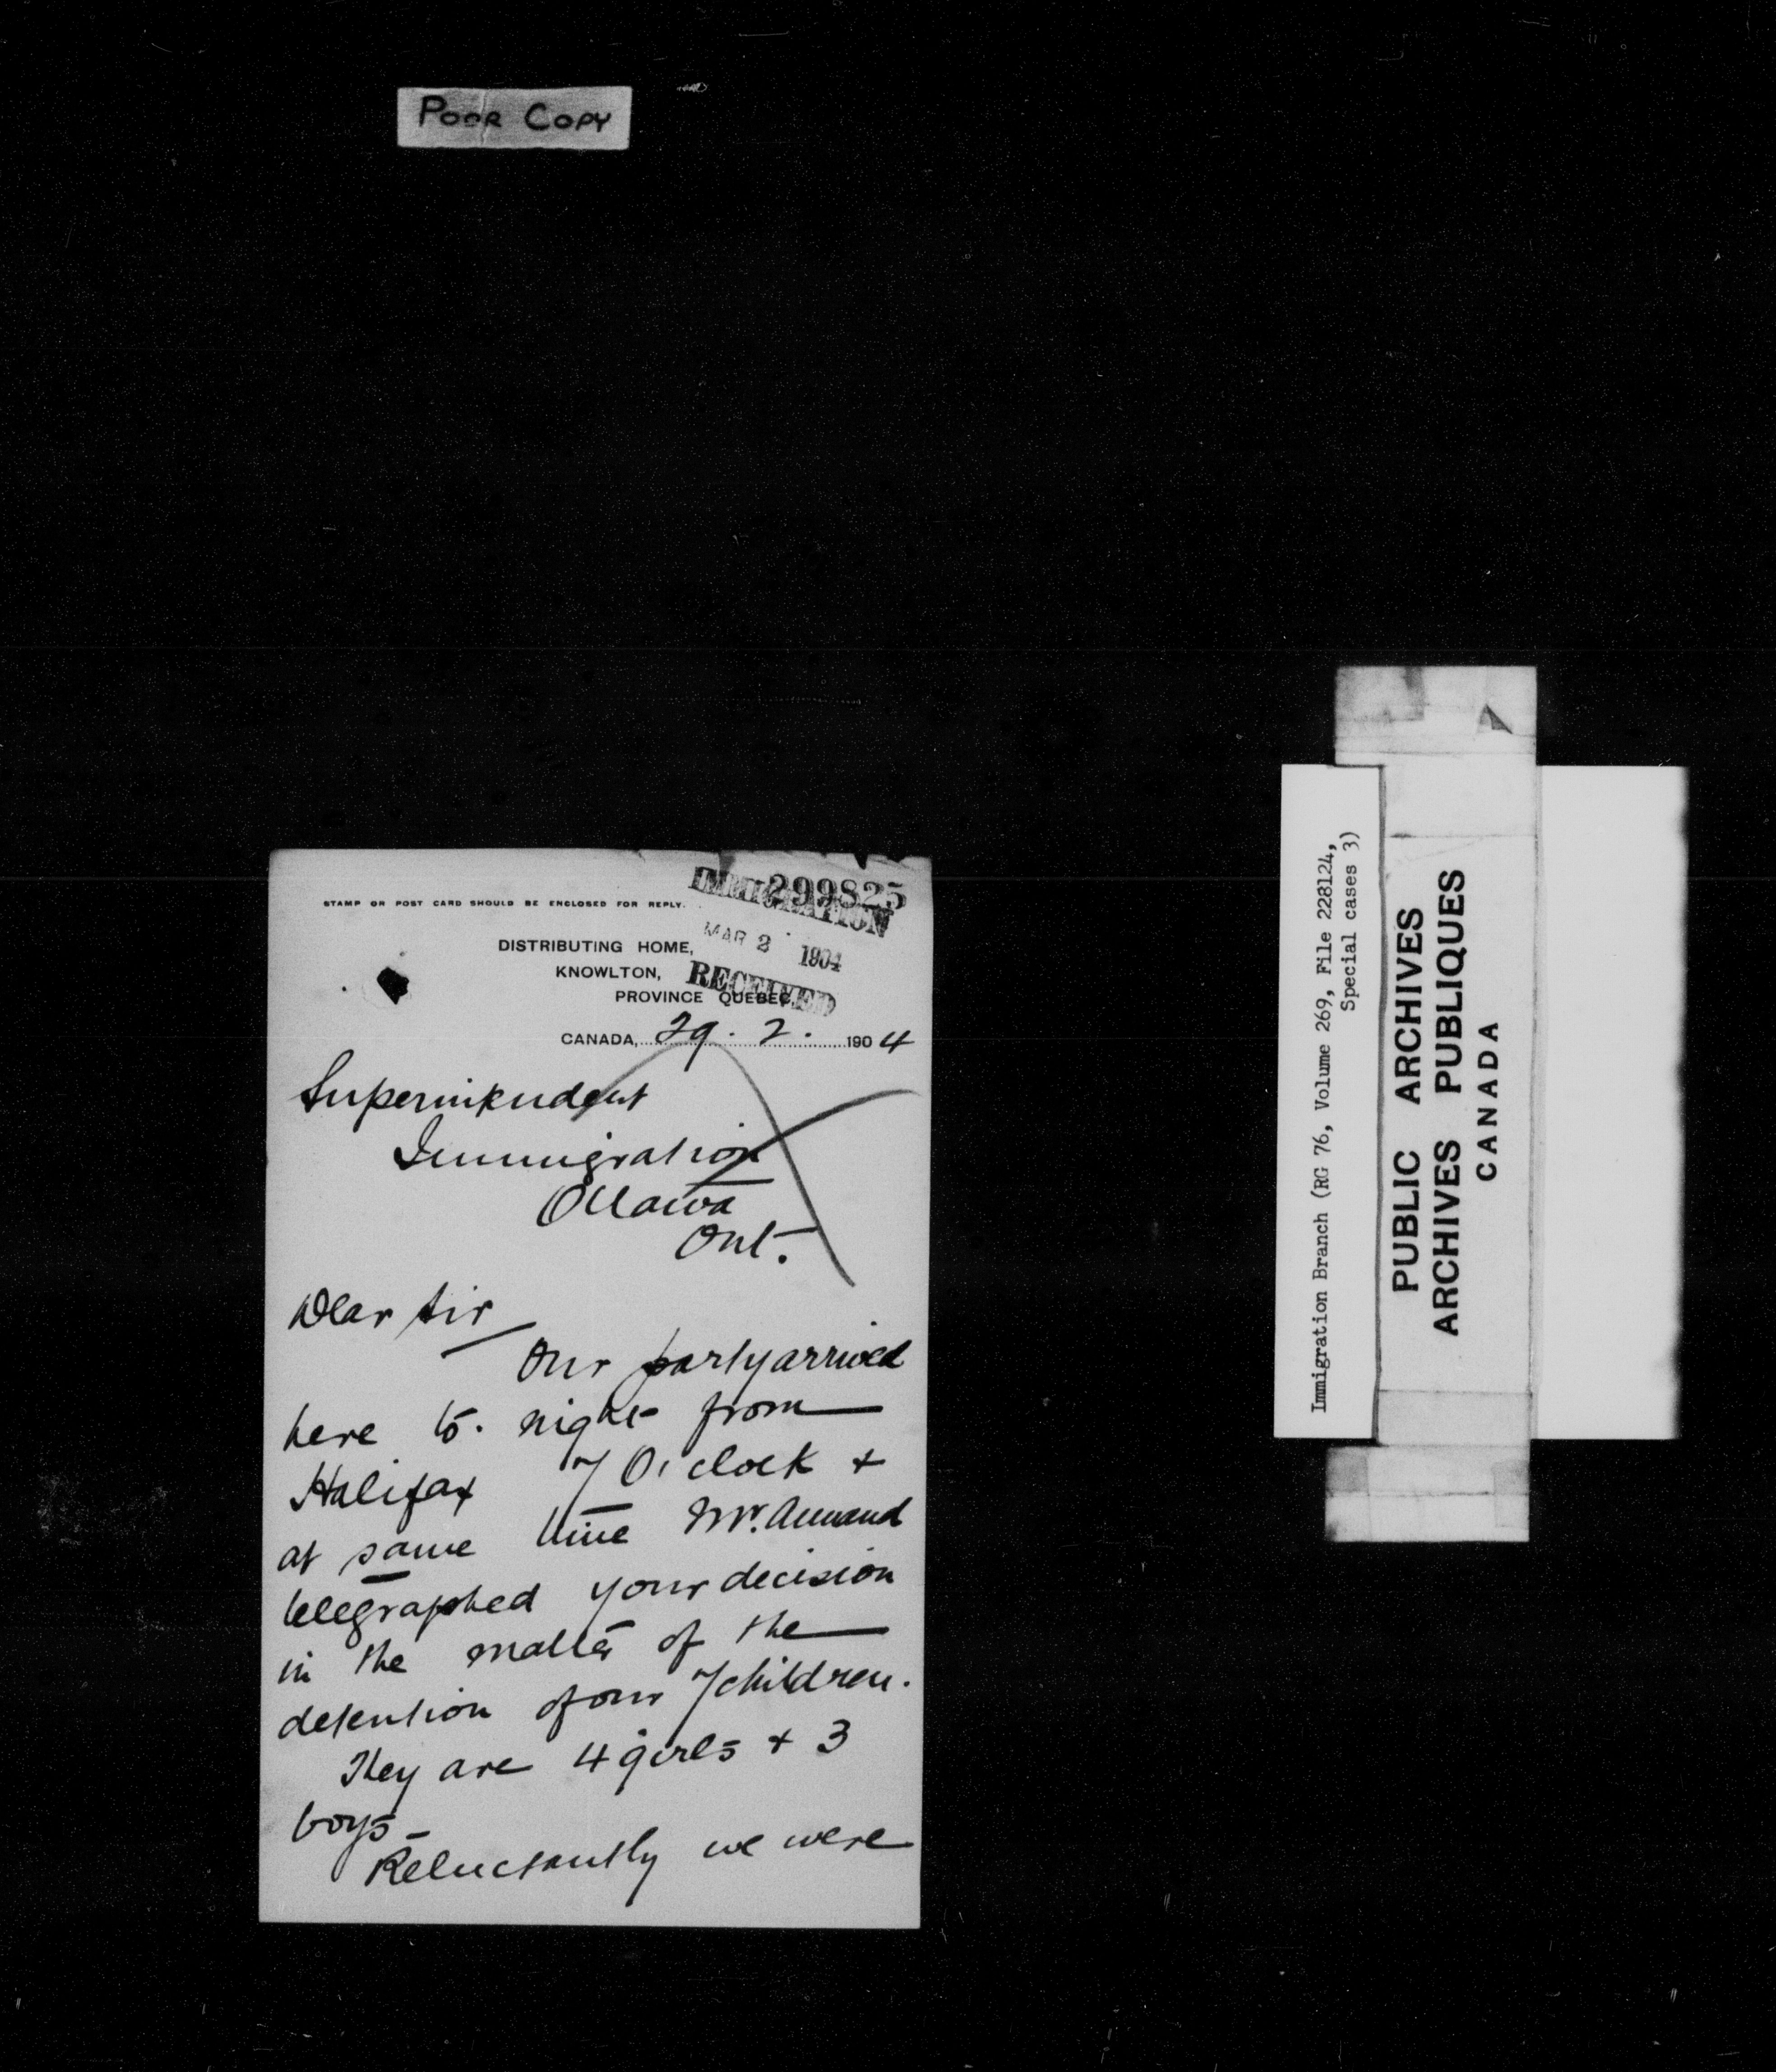 POOR COPY
299825
IMMIGRATION
STAMP OR POST CARD SHOULD BE ENCLOSED FOR REPLY.
MAR 2 1904
DISTRIBUTING HOME,
KNOWLTON,
RECEIVED
PROVINCE QUEBEC,
CANADA, 29. 2. 1904
Superintendent
Immigration
Ottawa
Ont.
Dear Sir
Our party arrived
here to. night from
Halifax 7 O'clock +
at same time Mr. Annand
telegraphed your decision
in the matter of the
detention of our 7 children.
They are 4 girls + 3
boys -
Reluctantly we were
Immigration Branch (RG 76, Volume 269, File 228124,
Special cases 3)
PUBLIC ARCHIVES
ARCHIVES PUBLIQUES
CANADA